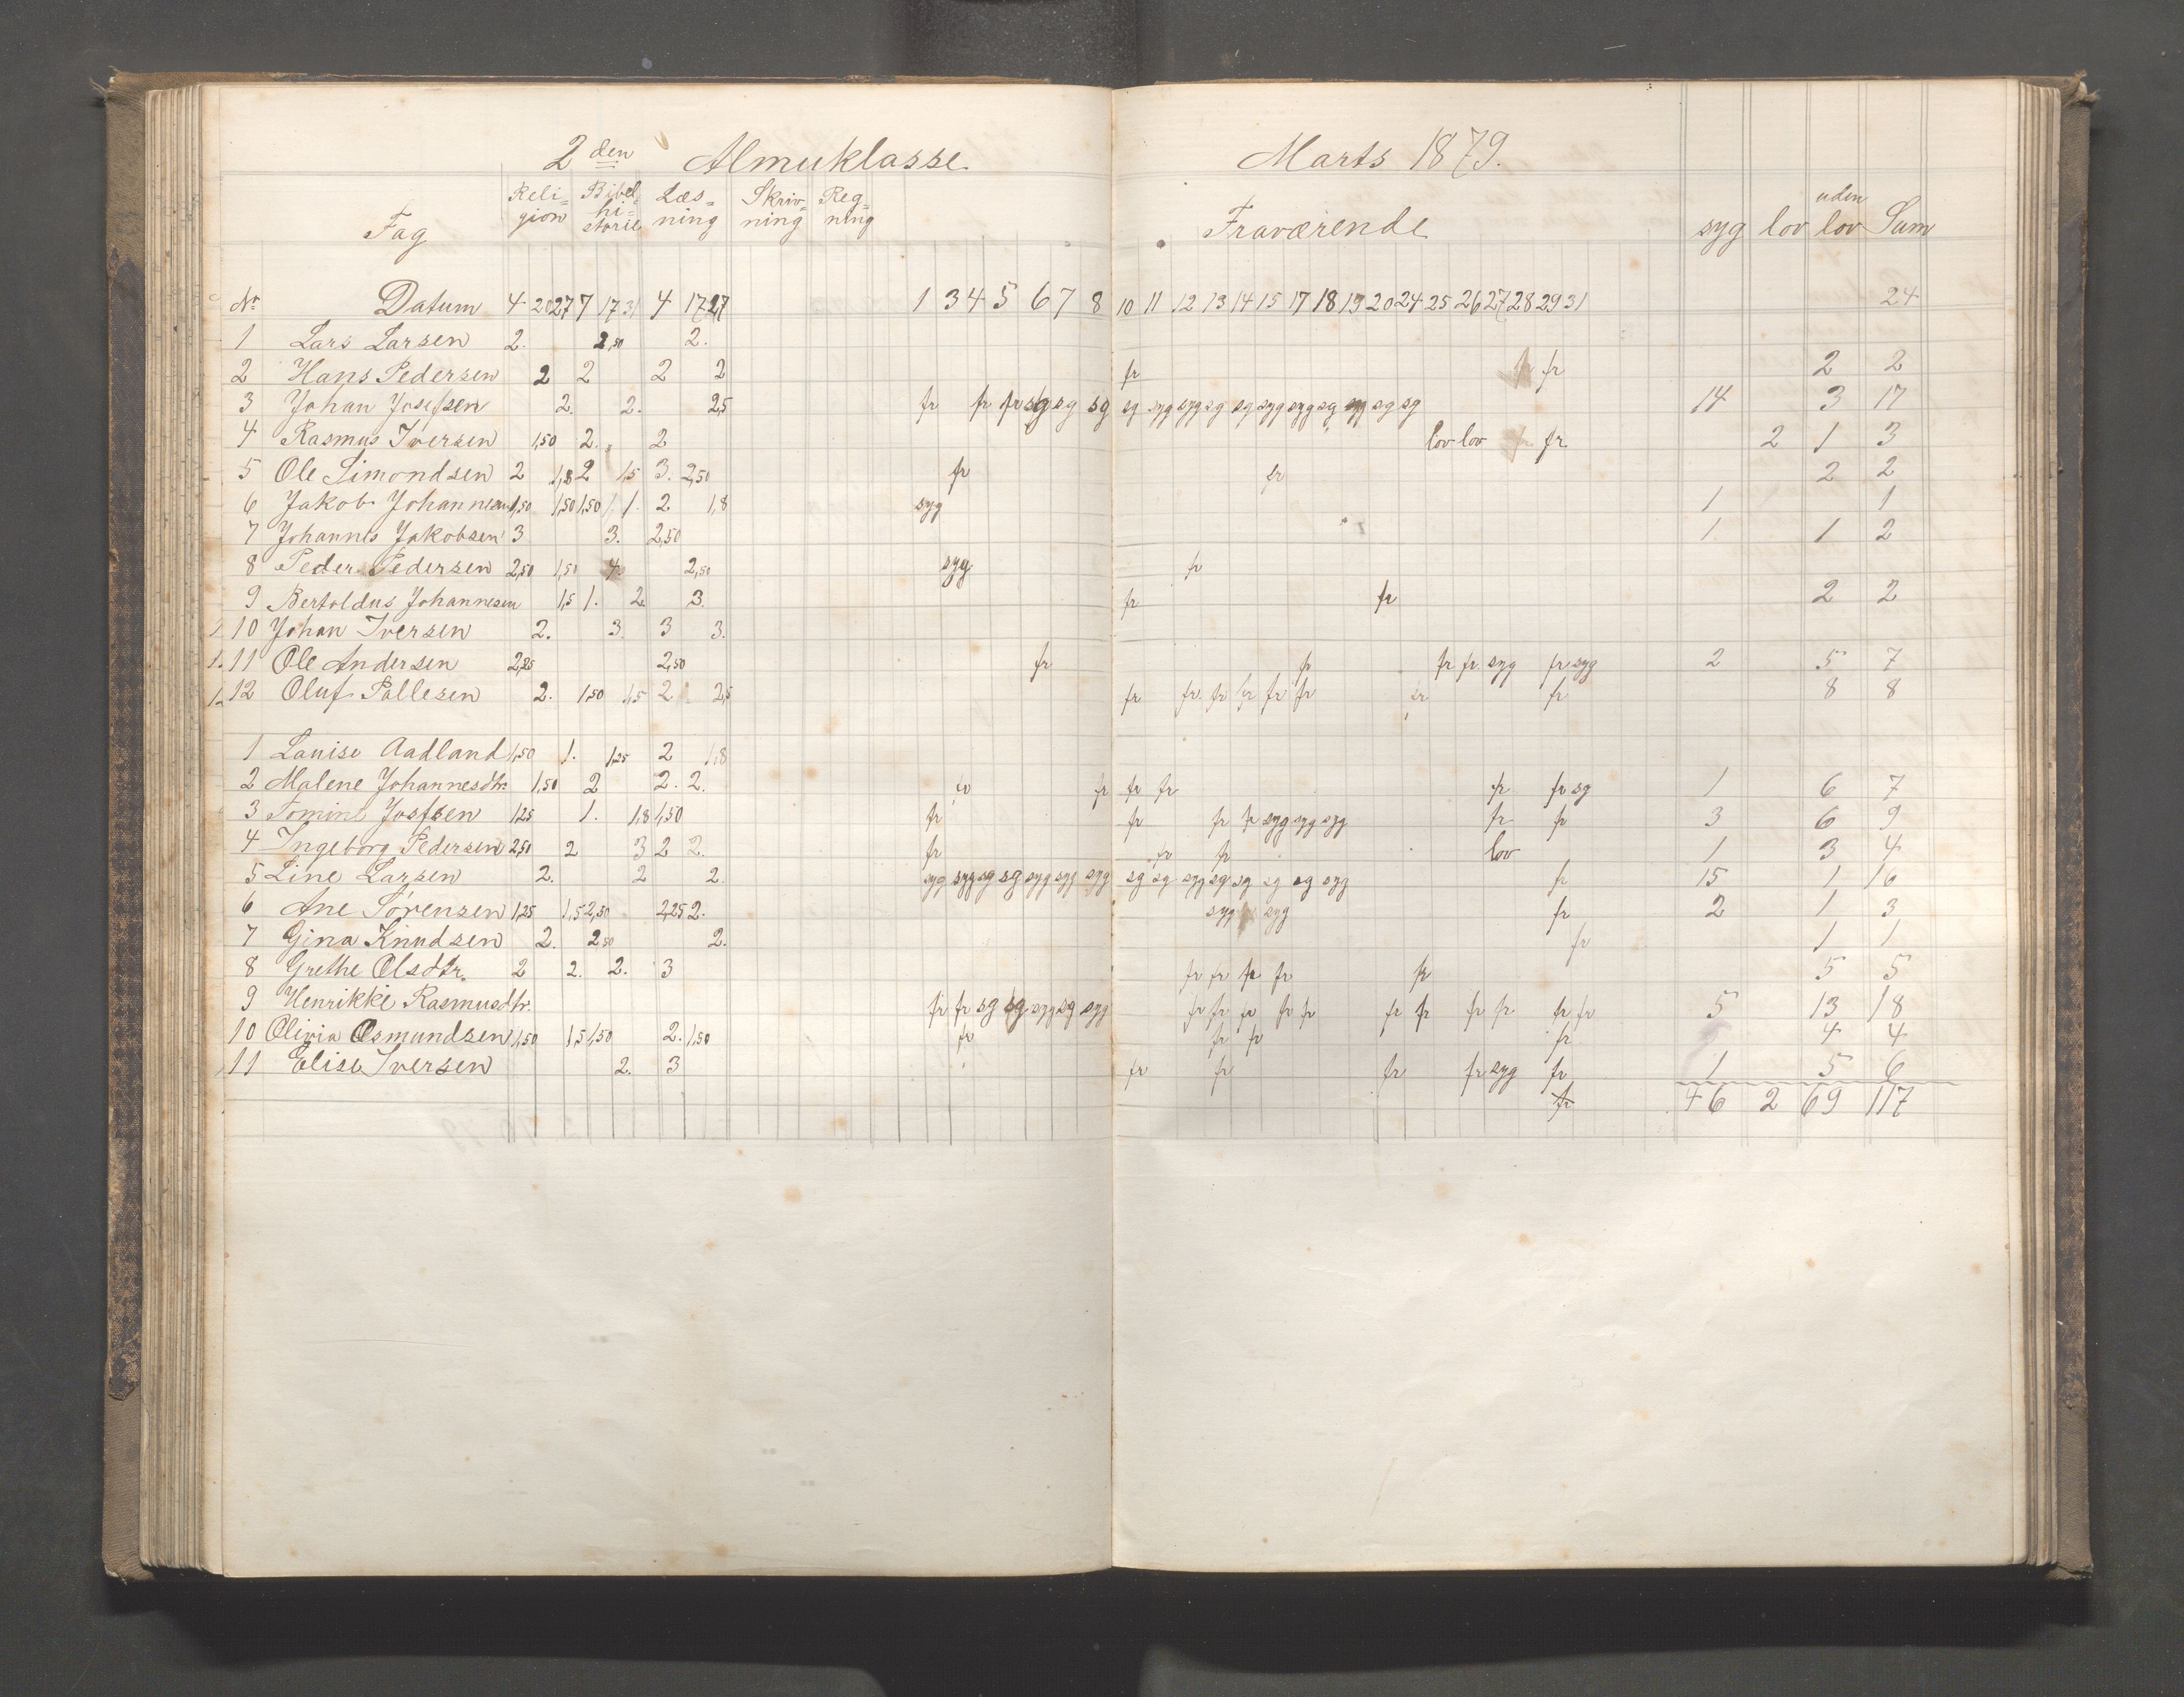 2den Almuklasse Marts 1879.
Fag Reli=gion Bibel=hi=storie Læs=ning Skriv=ning Reg=ning Fraværende syg lov uden lov Sum
Nr Datum 4 20 27 7 17 31 4 17 27 1 3 4 5 6 7 8 10 11 12 13 14 15 17 18 19 20 24 25 26 27 28 29 31 24
1 Lars Larsen 2. 2,50 2.
2 Hans Pedersen 2 2 2 2 fr fr fr 2 2
3 Johan Josefsen 2. 2. 2,5 fr fr fr syg sg sg sg syg syg sg sg syg syg sg syg sg sg 14 3 17
4 Rasmus Iversen 1,50 2. 2 lov lov fr fr 2 1 3
5 Ole Simondsen 2 1,8 2 1,5 3. 2,50 fr fr 2 2
6 Jakob Johannesen 1,50 1,50 1,50 1. 2 1,8 syg 1 1
7 Johannes Jakobsen 3 3. 2,50 1 1 2
8 Peder Pedersen 2,50 1,50 4 2,50 syg fr
9 Bertoldus Johannesen 1,5 1. 2. 3. fr fr 2 2
10 Johan Iversen 2. 3. 3 3.
1. 11 Ole Andersen 2,25 2,50 fr fr fr fr. syg fr syg 2 5 7
12 Oluf Pallesen 2. 1,50 1,5 2 2,5 fr fr. fr fr fr fr fr fr 8 8
1 Lauise Aadland 1,50 1. 1,25 2 1,8
2 Malene Johannesdtr. 1,50 2 2. 2. fr fr fr fr fr fr sg 1 6 7
3 Tomine Josfsen 1,25 1. 1,8 1,50 fr fr fr fr syg syg syg fr fr 3 6 9
4 Ingeborg Pedersen 2,50 2 3 2 2. fr fr fr lov 1 3 4
5 Line Larsen 2. 2 2. syg syg sg sg syg syg syg sg sg syg sg sg sg sg syg fr 15 1 16
6 Ane Sørensen 1,25 1,5 2,50 2,25 2. syg syg fr 2 1 3
7 Gina Knudsen 2. 2,50 2. fr 1 1
8 Grethe Olsdtr. 2 2. 2. 3 fr fr fr fr fr 5 5
9 Henrikke Rasmusdtr. fr fr sg sg syg sg syg fr fr fr fr fr fr fr fr fr fr fr 5 13 18
10 Olivia Osmundsen 1,50 1,5 1,50 2. 1,50 fr fr fr fr 4 4
11 Elise Iversen 2. 3 fr fr fr fr syg fr 1 5 6
fr 46 2 69 117